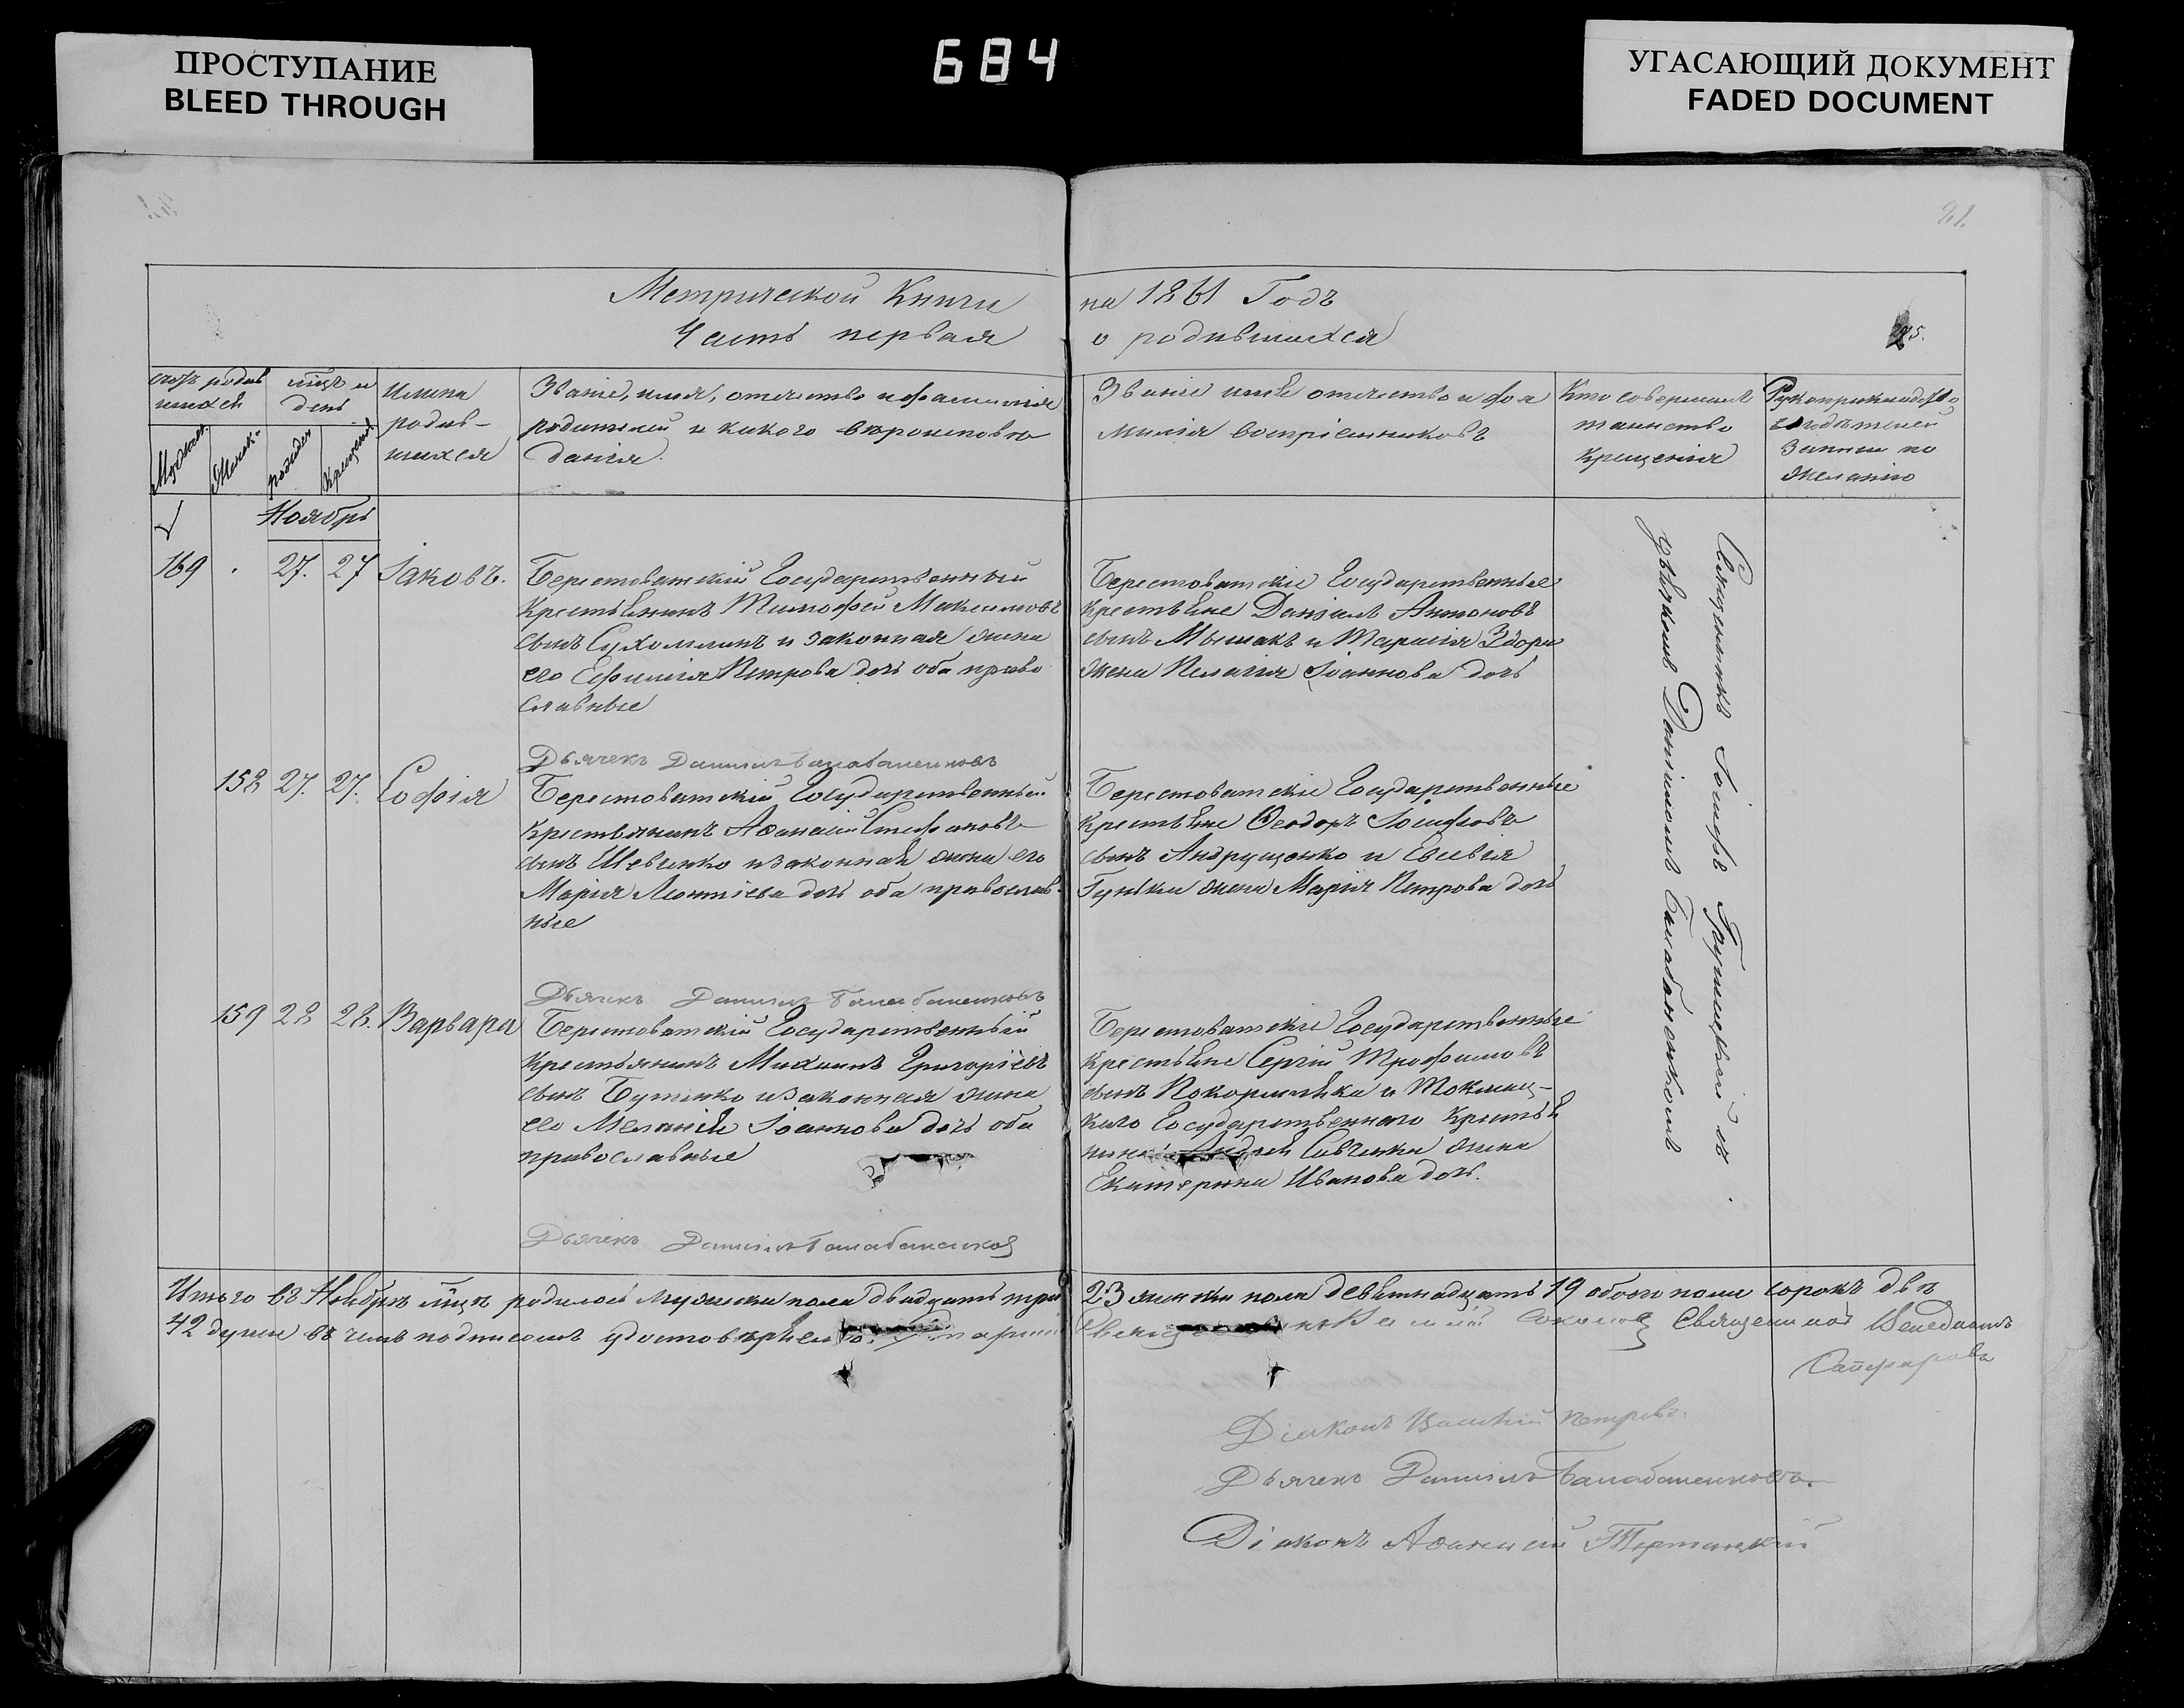 ПРОСТУПАНИЕ
BLEED THROUGH
684
УГАСАЮЩИЙ ДОКУМЕНТ
FADED DOCUMENT
21.
Метрической Книги на 1861 Годъ
Часть первая о родившихся
счотъ родив
шихся
мцъ и
день
Имена
родив-
шихся
Званіе, имя, отечество и фамилія
родителей и какого вѣроисповѣ
данія.
Званіе имя отечество и фа
милія воспріемниковъ
Кто совершалъ
таинство
крещенія
Рукоприкладство
записи по
желанію
Ноябрь
169 27. 27 Іаковъ.
Берестоватскій Государственный
Крестьянинъ Тимофей Максимовъ
сынъ Сухомлинъ и законная жена
его Ефимія Петрова дочь оба право
славные
Берестоватскіе Государственные
крестьяне Даніилъ Антоновъ
сынъ Мышакъ и Тарасія
жена Пелагія Іоаннова дочь
Дьячекъ Даниилъ Балабаненковъ
158 27. 27. Софія
Берестоватскій Государственный
крестьянинъ Афанасій Стефановъ
сынъ Шевченко и законная жена его
Марія Леонтіева дочь оба православ-
ные
Берестоватскіе Государственные
крестьяне Феодоръ Іосифовъ
сынъ Андрущенко и Евсевія
Гуньки жена Марія Петрова дочь
Дьячекъ Даниилъ Балабаненковъ
159 28 28. Варвара
Берестоватскій Государственный
крестьянинъ Михаилъ Григоріевъ
сынъ Бутенко и законная жена
его Меланія Іоаннова дочь оба
православные
Берестоватскіе Государственные
крестьяне Сергій Трофимовъ
сынъ и Токмац-
каго Государственнаго крестья
нина Андрея Савченка жена
Екатерина Иванова дочь.
Дьячекъ Даниилъ Балабаненков
Священникъ Іосифъ съ
дьячкомъ Даніиломъ Балабаненкомъ
Итого въ Ноябрѣ мцѣ родилось мужеска пола двадцать три 23 женска пола девятнадцать 19 обоего пола сорокъ двѣ
42 души въ чемъ подписомъ удостовѣряемъ Соколов Священник Венедиктъ
Діаконъ Василій Петровъ.
Дьячекъ Даниилъ Балабаненковъ.
Діаконъ Афанасій